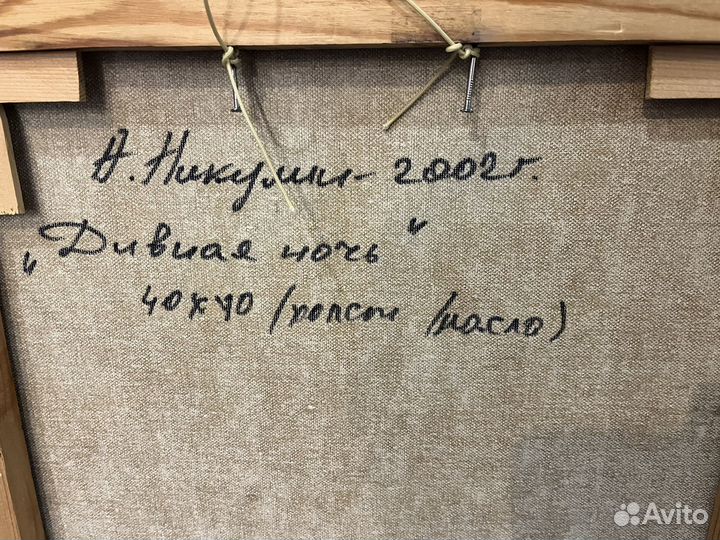 А. Никулин - 2002г.
„Дивная ночь"
40х40 (холст /масло)
Avito